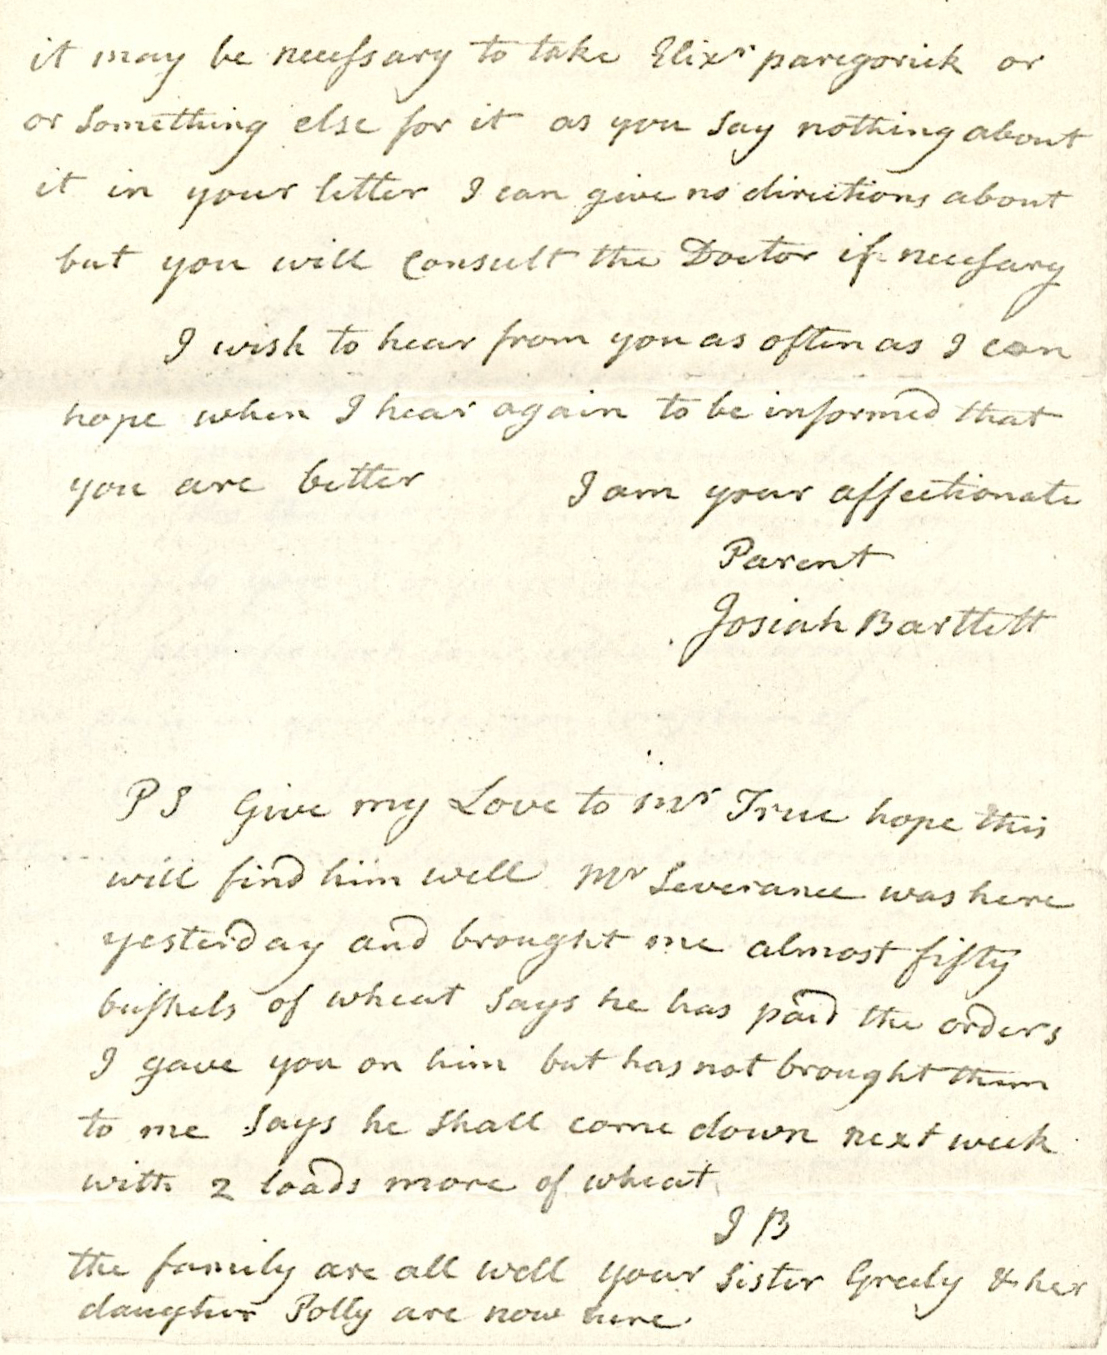 it may be necessary to take Elixr paregorick or
or something else for it as you say nothing about
it in your letter I can give no directions about
but you will Consult the Doctor if necessary
I wish to hear from you as often as I can
hope when I hear again to be informed that
you are better I am your affectionate
Parent
Josiah Bartlett
PS Give my Love to Mr True hope this
will find him well Mr Severance was here
yesterday and brought me almost fifty
bushels of wheat says he has paid the orders
I gave you on him but has not brought them
to me says he shall come down next week
with 2 loads more of wheat
J B
the family are all well your Sister Greely & her
daughter Polly are now here.